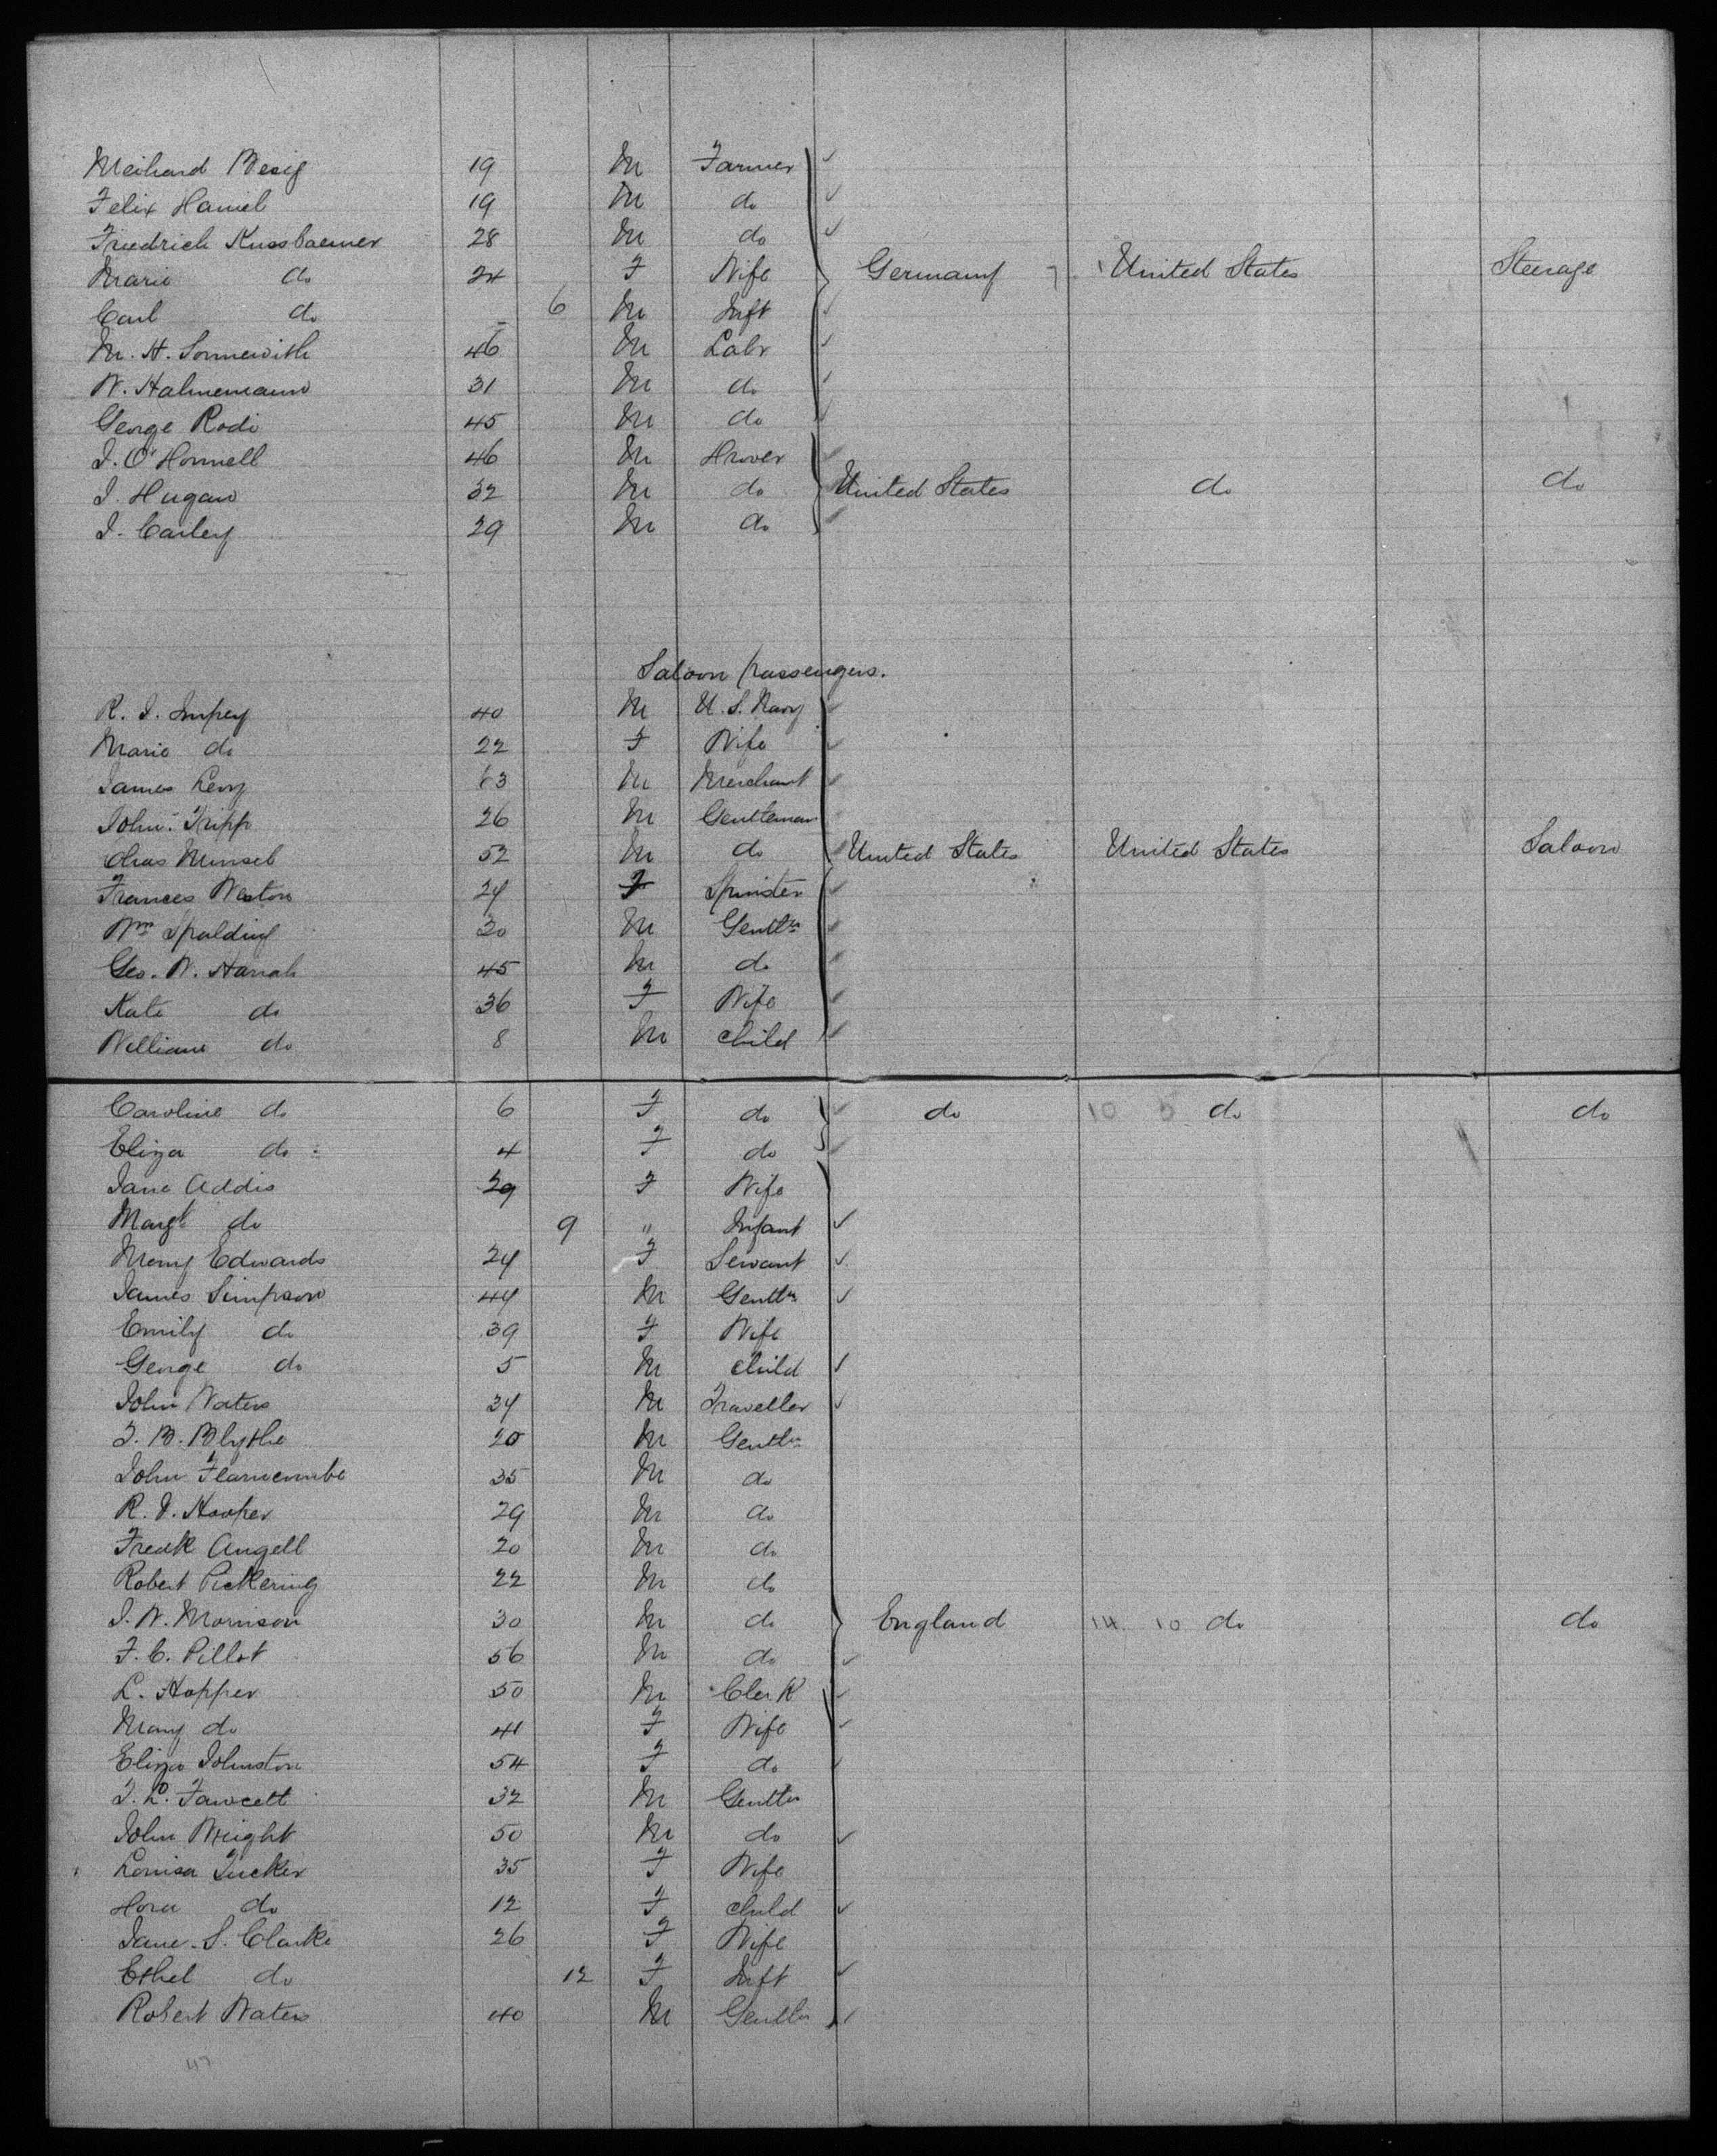 Meihard Besig 19 M Farmer
Felix Haniel 19 M do
Friedrich Kussbaemer 28 M do
Marie do 24 F Wife Germany United States Steerage
Carl do 6 M Inft
M. H. Sonnewith 46 M Labr
W. Halmemann 31 M do
George Rodi 45 M do
J. O'Honnell 46 M Hrover
J. Hugan 32 M do United States do do
J. Carley 29 M do
Saloon passengers.
R. J. Impey 40 M U.S. Navy
Marie do 22 F Wife
James Levy 63 M Merchant
John Tripp 26 M Gentleman
Chas Munsel 52 M do United States United States Saloon
Frances Weston 24 F Spinster
Wm Spalding 30 M Gentln
Geo. W. Harrah 45 M do
Kate do 36 F Wife
William do 8 M child
Caroline do 6 F do do 10 5 do do
Eliza do 4 F do
Jane Addis 29 F Wife
Margt do 9 " Infant
Mary Edwards 24 F Servant
James Simpson 44 M Gentln
Emily do 39 F Wife
George do 5 M child
John Waters 34 M Traveller
T. B. Blythe 20 M Gentln
John Flamcombe 35 M do
R. J. Hooper 29 M do
Fredk Angell 20 M do
Robert Pickering 22 M do
J. W. Morrison 30 M do England 14 10 do do
F. C. Pillot 56 M do
L. Hopper 50 M Clerk
Mary do 41 F Wife
Eliza Johnston 54 F do
T. L. Fawcett 32 M Gentln
John Wright 50 M do
Louisa Tucker 35 F Wife
Hora do 12 F child
Jane S. Clarke 26 F Wife
Ethel do 12 F Inft
Robert Waters 40 M Gentln